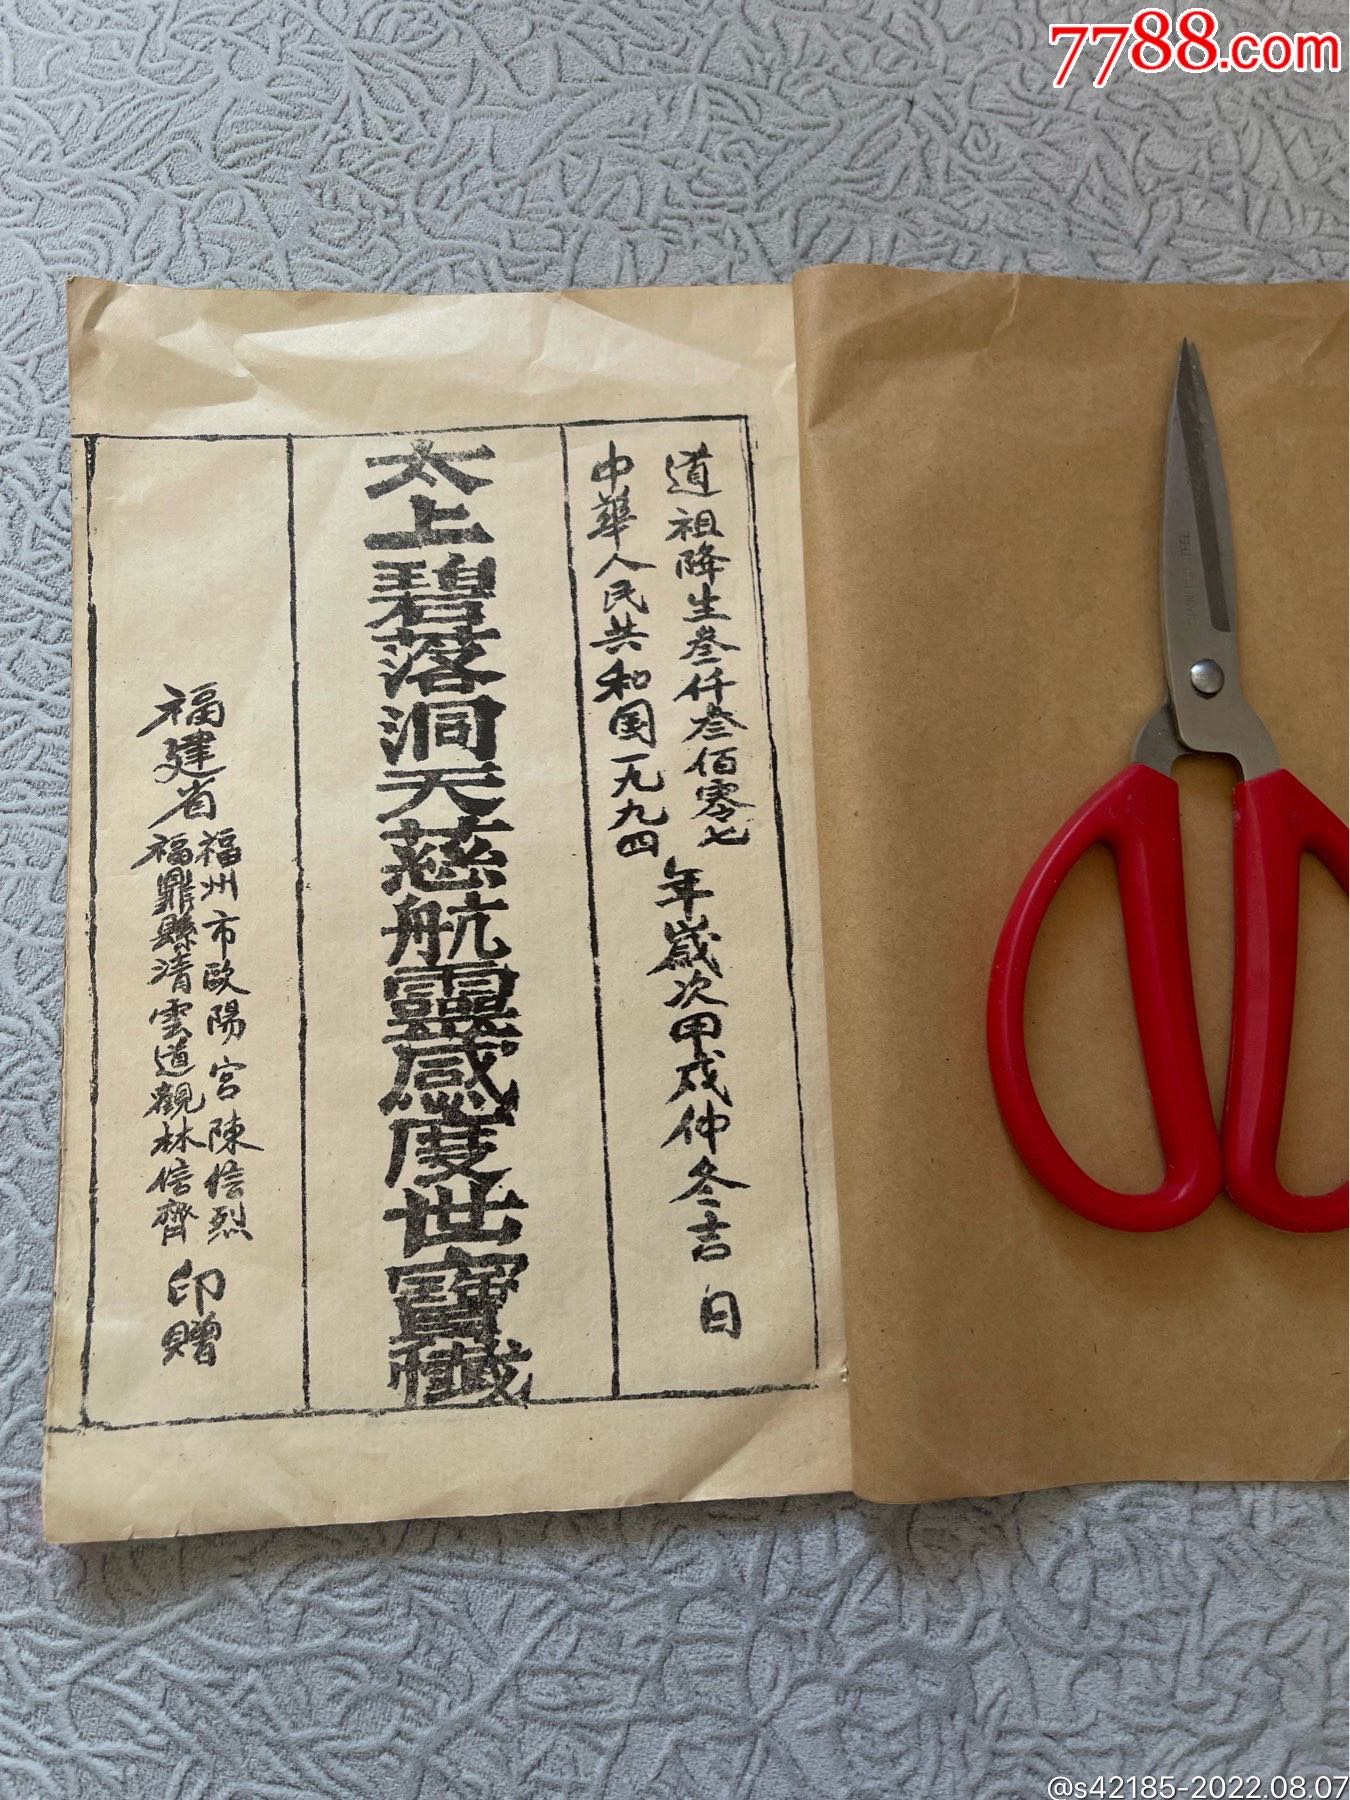 7788.com
道祖降生叁仟叁佰零七
中華人民共和国一九九四
年歲次甲戌仲冬吉日
太上碧落洞天慈航靈感度世寶懺
福建省
福州市歐陽宮陳信烈
福鼎縣清雲道觀林信齊
印贈
@s42185-2022.08.07